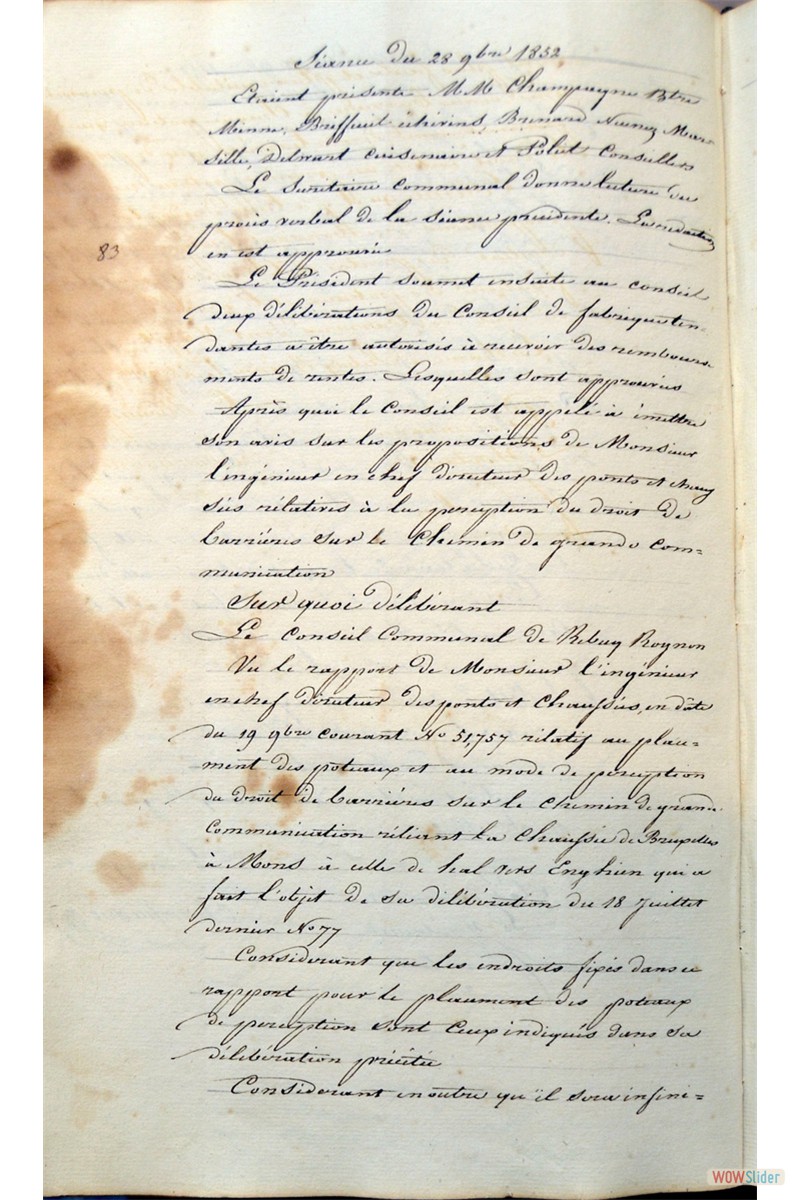 Séance du 28 9bre 1852
Etaient présents MM Champagne Bgtre
Minne, Briffeuil échevins, Brenard Mar=
sille, Delwart Cuisenaire et Polet Conseillers
Le Secrétaire communal donne lecture du
procès verbal de la séance précédente. La rédaction
83
en est approuvée
Le Président soumet ensuite au conseil
deux délibérations du Conseil de fabrique ten-
dantes a être autorisés à recevoir des rembourse
ments de rentes. Lesquelles sont approuvées
Après quoi le Conseil est appelé à émettre
son avis sur les propositions de Monsieur
l'ingénieur en chef directeur des ponts et chaus
sées rélatives à la perception du droit de
barrières sur le chemin de grande com=
munication
Sur quoi délibérant
Le Conseil Communal de Rebecq Rognon
Vu le rapport de Monsieur l'ingénieur
en chef directeur des ponts et chaussées, en dâte
du 19 9bre courant No 51,757 rélatif au place=
ment des poteaux et au mode de perception
du droit de barrières sur le chemin de grande
Communication réliant la chaussée de Bruxelles
à Mons à celle de hal vers Enghien qui a
fait l'objet de sa délibération du 18 Juillet
dernier No 77
Considérant que les endroits fixés dans ce
rapport pour le placement des poteaux
de perception sont ceux indiqués dans sa
délibération précitée
Considérant en outre qu'il sera infini=
WOWSlider